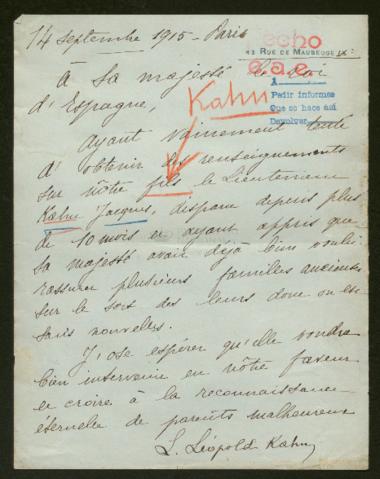 14 septembre 1915 - Paris
echo
43 RUE DE MAUBEUGE IX:
e.a.e.
A
Pedir informes
Que se hace asi
Devolver
À Sa majesté le Roi
d'Espagne,
Kahn
Ayant vainement tenté
d'obtenir des renseignements
sur nôtre fils le Lieutenant
Kahn Jacques, disparu depuis plus
de 10 mois et ayant appris que
Sa majesté avait déjà bien voulu
rassurer plusieurs familles anxieuses
sur le sort des leurs dont on est
sans nouvelles.
J'ose espérer qu'elle voudra
bien intervenir en nôtre faveur
et croire à la reconnaissance
éternelle de parents malheureux
L. Léopold Kahn